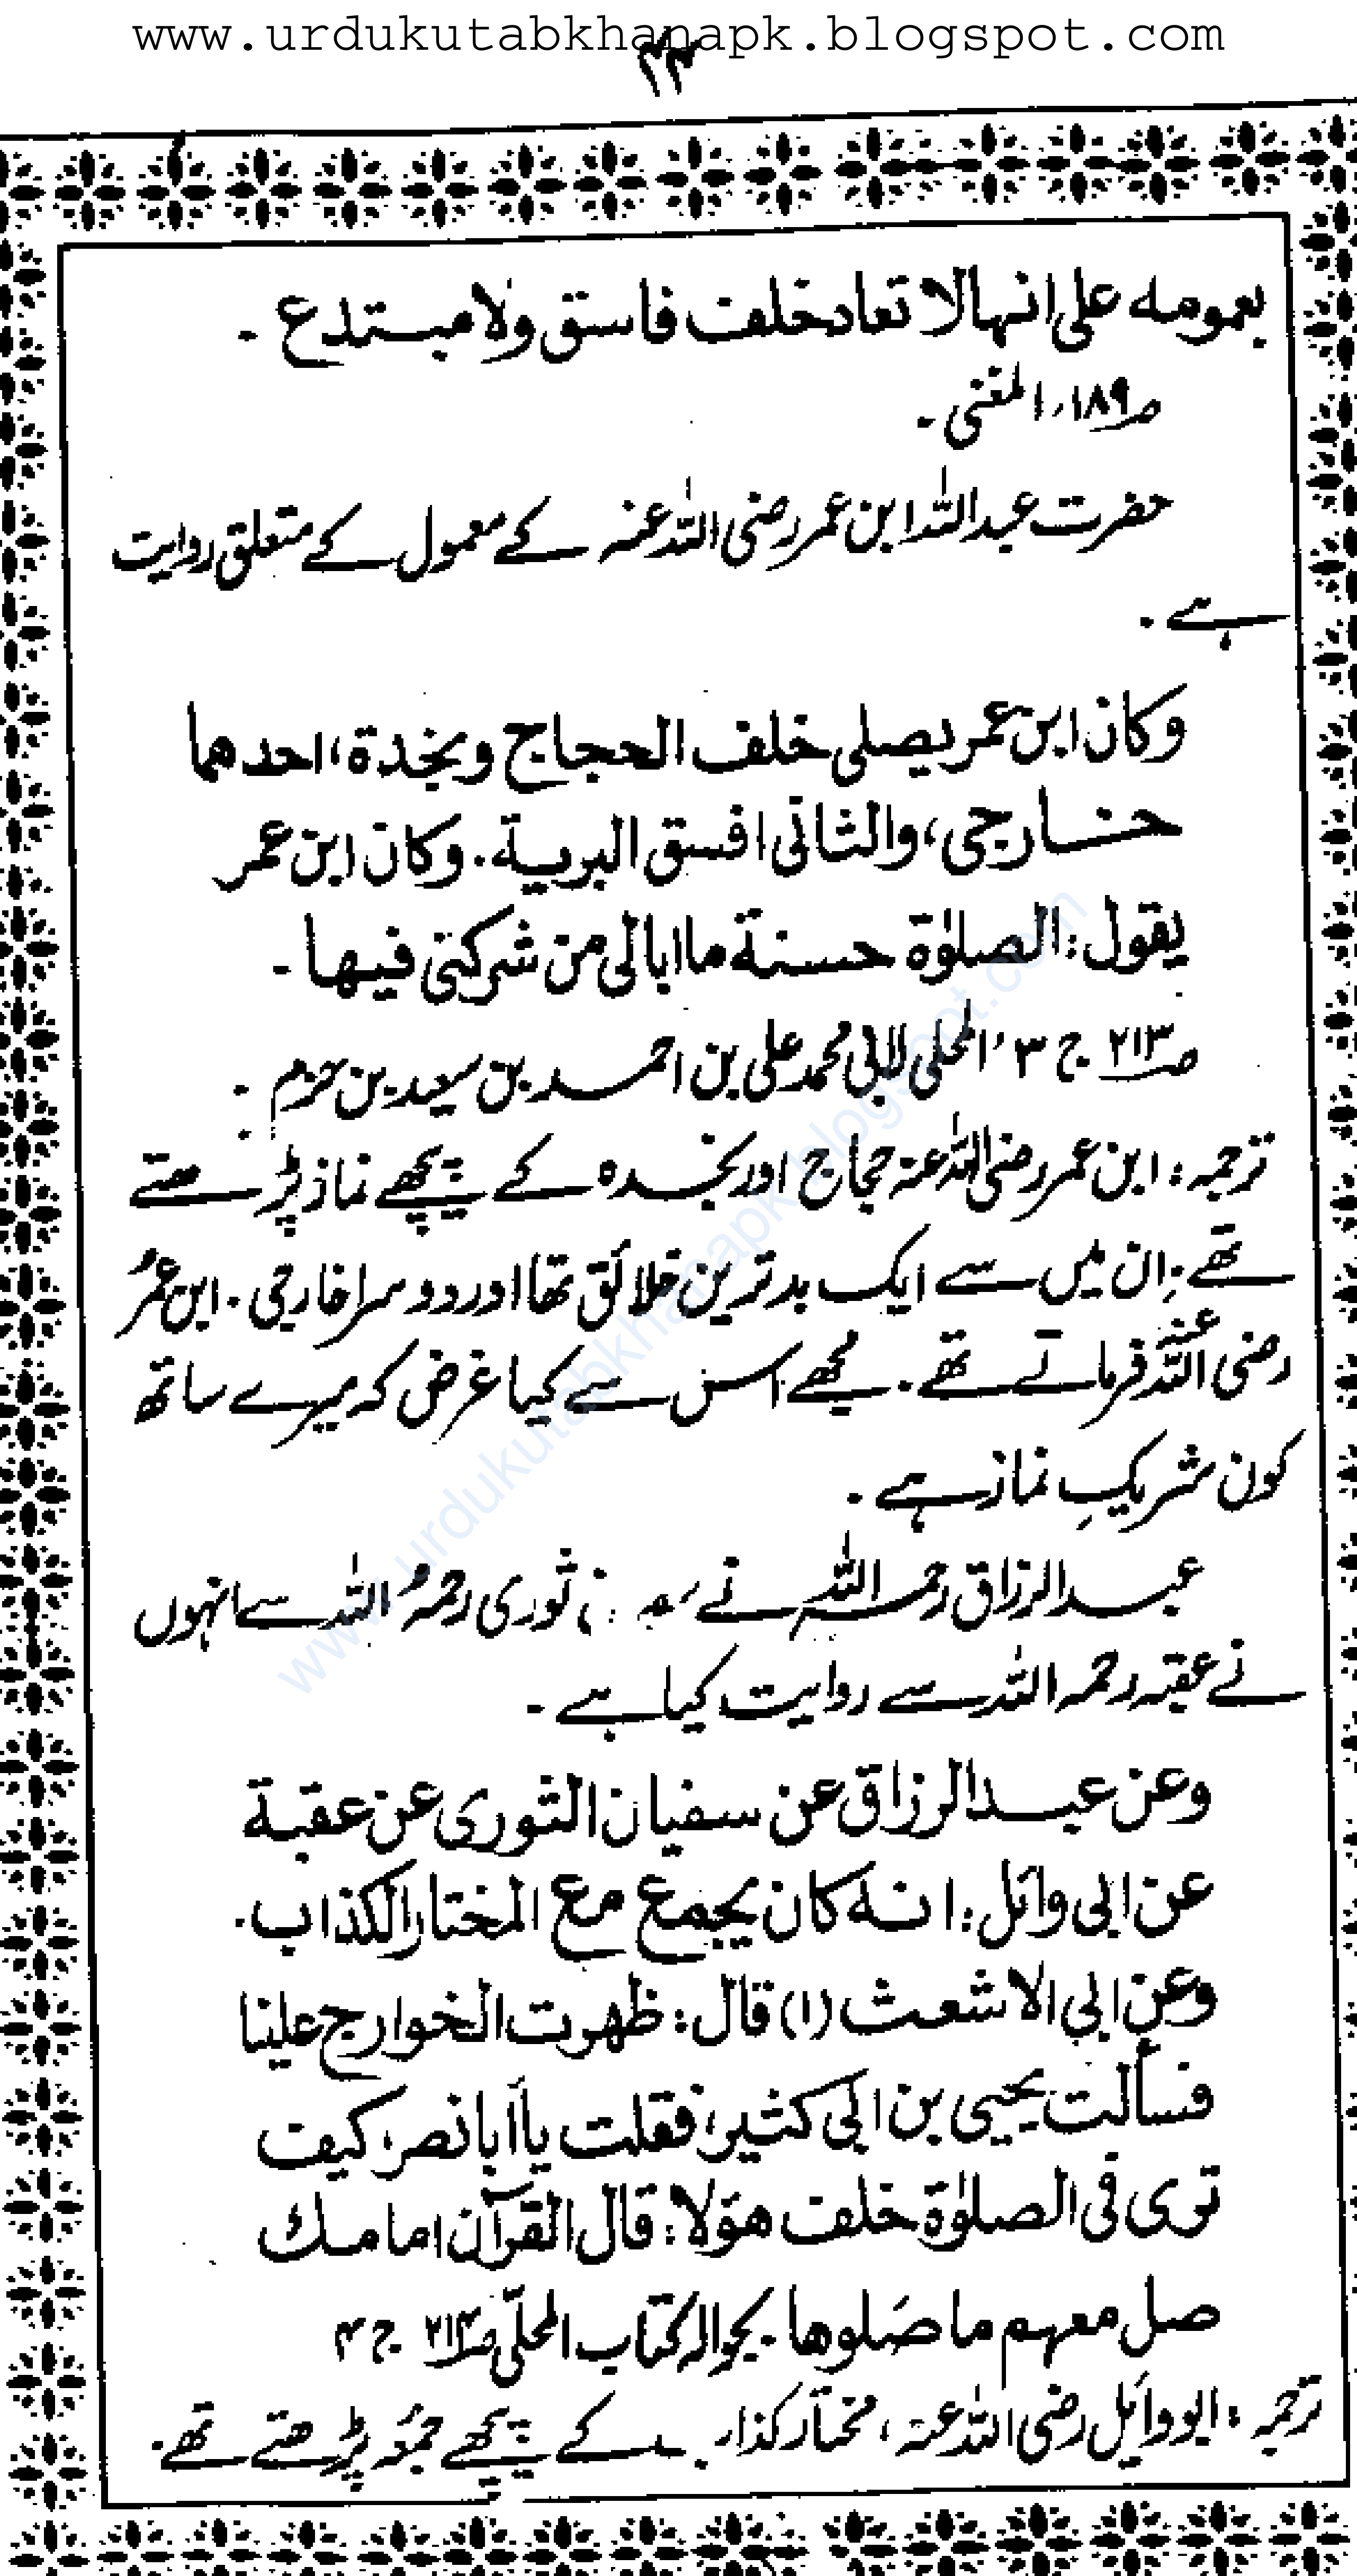 www.urdukutabkhanapk.blogspot.com
۴۴
بعمومه علی انها لا تعاد خلف فاسق ولا مبتدع ۔
صـ۱۸۹، المغنی ۔
حضرت عبداللہ ابن عمر رضی اللہ عنہ کے معمول کے متعلق روایت
ہے ۔
وکان ابن عمر یصلی خلف الحجاج ونجدة، احدهما
خارجی، والثانی افسق البریة ۔ وکان ابن عمر
یقول: الصلوٰة حسنة ما ابالی من شرکنی فیها ۔
صـ۲۱۳ ج ۳، المحلی لابی محمد علی بن احمد بن سعید بن حزم ۔
ترجمہ: ابن عمر رضی اللہ عنہ حجاج اور نجدہ کے پیچھے نماز پڑھتے
تھے۔ ان میں سے ایک بدترین خلائق تھا اور دوسرا خارجی ۔ ابن عمرؓ
رضی اللہ عنہ فرماتے تھے ۔ مجھے اس سے کیا غرض کہ میرے ساتھ
کون شریکِ نماز ہے ۔
عبدالرزاق رحمہ اللہ نے ثوری رحمہُ اللہ سے انہوں
نے عقبہ رحمہ اللہ سے روایت کیا ہے ۔
وعن عبدالرزاق عن سفیان الثوری عن عقبة
عن ابی وائل: انه کان یجمع مع المختار الکذاب ۔
وعن ابی الاشعث (۱) قال: ظهرت الخوارج علینا
فسألت یحیی بن ابی کثیر، فقلت یا أبا نصر، کیف
تری فی الصلوٰة خلف هؤلا: قال القرآن امامك
صل معهم ما صَلوها ۔ بحوالہ کتاب المحلّی صـ۲۱۴ ج ۴
ترجمہ: ابو وائل رضی اللہ عنہ، مختار کے پیچھے جمعہ پڑھتے تھے ۔
www.urdukutabkhanapk.blogspot.com